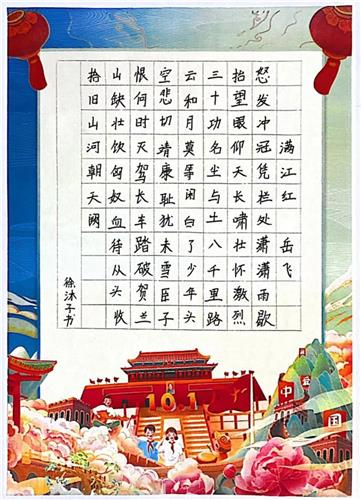 满江红 岳飞
怒发冲冠凭栏处潇潇雨歇
抬望眼仰天长啸壮怀激烈
三十功名尘与土八千里路
云和月莫等闲白了少年头
空悲切靖康耻犹未雪臣子
恨何时灭驾长车踏破贺兰
山缺壮饮匈奴血待从头收
拾旧山河朝天阙
徐沐子书
10.1
中国